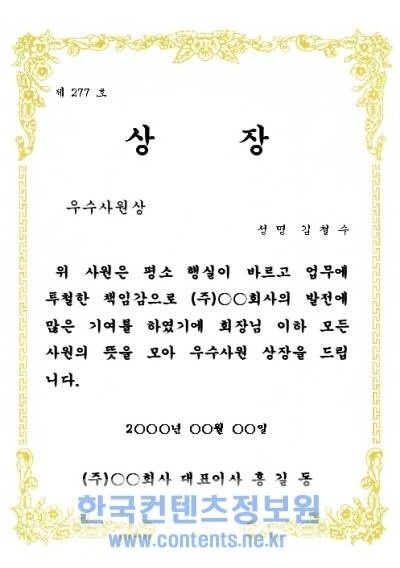 제 277 호
상 장
우수사원상
성명 김철수
위 사원은 평소 행실이 바르고 업무에
투철한 책임감으로 (주)○○회사의 발전에
많은 기여를 하였기에 회장님 이하 모든
사원의 뜻을 모아 우수사원 상장을 드립
니다.
2000년 00월 00일
(주)○○회사 대표이사 홍 길 동
한국컨텐츠정보원
www.contents.ne.kr